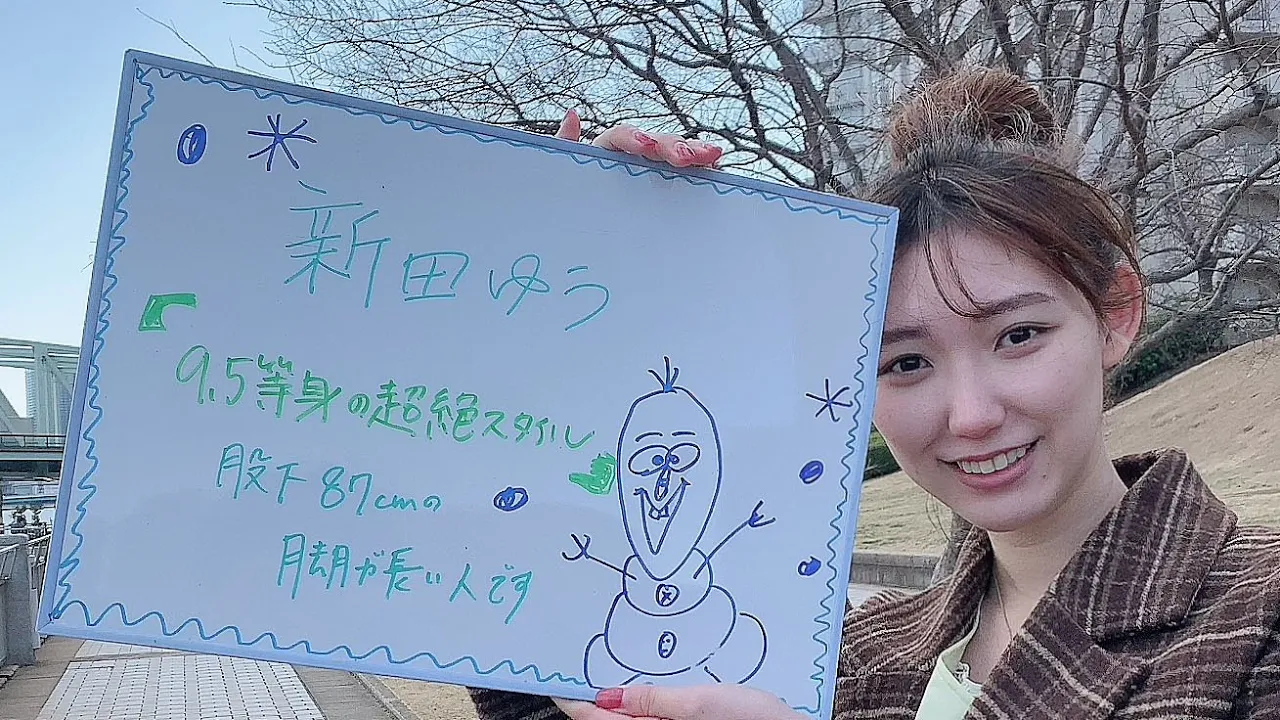 新田ゆう
「9.5等身の超絶スタイル」
股下87cmの
脚が長い人です